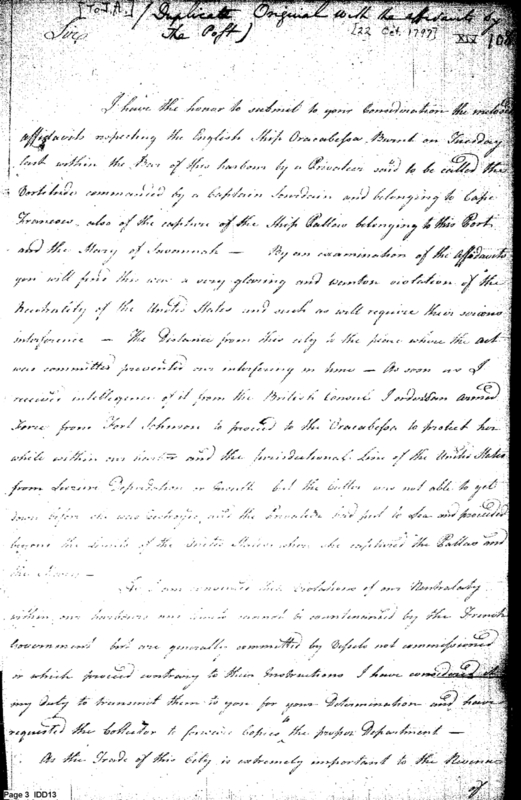 [To J.A.] (Duplicate Original with the affidavits by
Sir, The Post) [22 Oct. 1797] XIX 108
I have the honor to submit to your Consideration the inclosed
affidavits respecting the English Ship Oracabessa Burnt on Tuesday
last within the Bar of this harbour by a Privateer said to be called the
commanded by a Captain Jourdain and belonging to Cape
Francois, also of the capture of the Ship Pallas belonging to this Port
and the Mary of Savannah — By an examination of the affidavits
you will find there was a very glaring and wanton violation of the
Neutrality of the United States and such as will require their serious
interference — The Distance from this city to the place where the act
was committed prevented our interfering in time — As soon as I
received intelligence of it from the British Consul I ordered an armed
Force from Fort Johnson to proceed to the Oracabessa to protect her
while within our and the Jurisdictional Line of the United States
from Depredation or but the Cutter was not able to get
down before she was destroyed, and the Privateer had put to Sea and proceeded
beyond the Limits of the United States where she captured the Pallas and
the Mary —
As I am convinced these violations of our Neutrality
within our harbours and limits cannot be countenanced by the French
Government but are generally committed by Vessels not commissioned
or which proceed contrary to their Instructions I have considered it
my duty to transmit them to you for your Determination and have
requested the Collector to forward Copies to the proper Department —
As the Trade of this City is extremely important to the Revenue
of
Page 3 IDD13